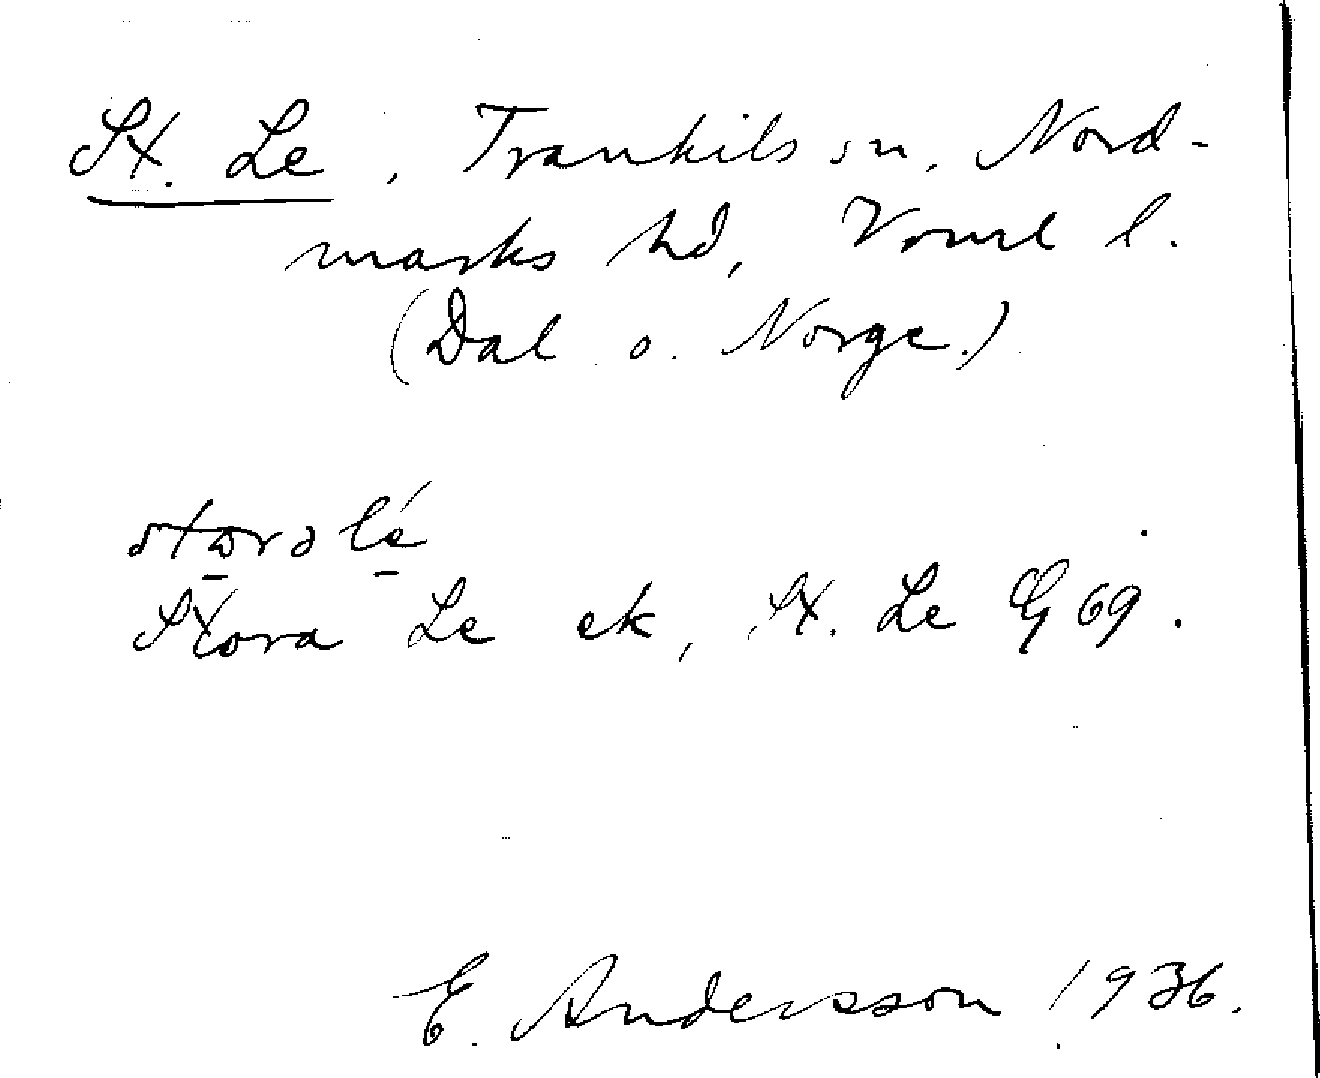 St. Le, Trankils sn, Nord-
marks hd, Vrml l.
(Dal o. Norge.)
Stora Le ek, St. Le G 69.
E. Andersson 1936.